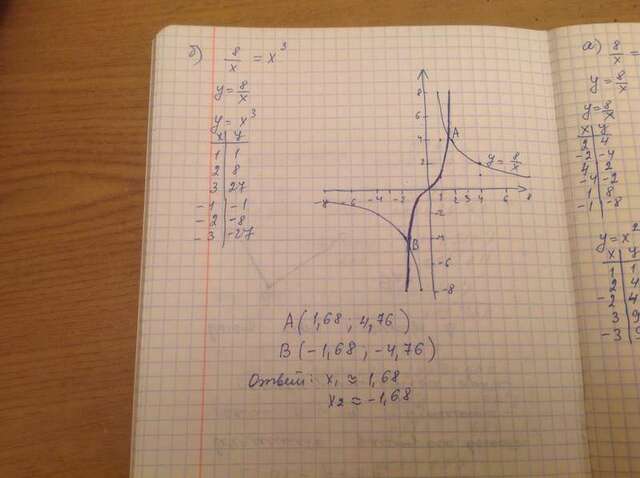 б) 8/x = x³
y = 8/x
y = x³
x y
1 1
2 8
3 27
-1 -1
-2 -8
-3 -27
8
6
4
2
-8 -6 -4 -2 2 3 4 6 8
-2
-4
-6
-8
A
B
y = 8/x
A(1,68; 4,76)
B(-1,68; -4,76)
Ответ: x₁ ≈ 1,68
x₂ ≈ -1,68
а) 8/x =
y = 8/x
y = 8/x
x y
2 4
-2 -4
4 2
-4 -2
1 8
-1 -8
y = x²
x y
1 1
2 4
-2 4
3 9
-3 9